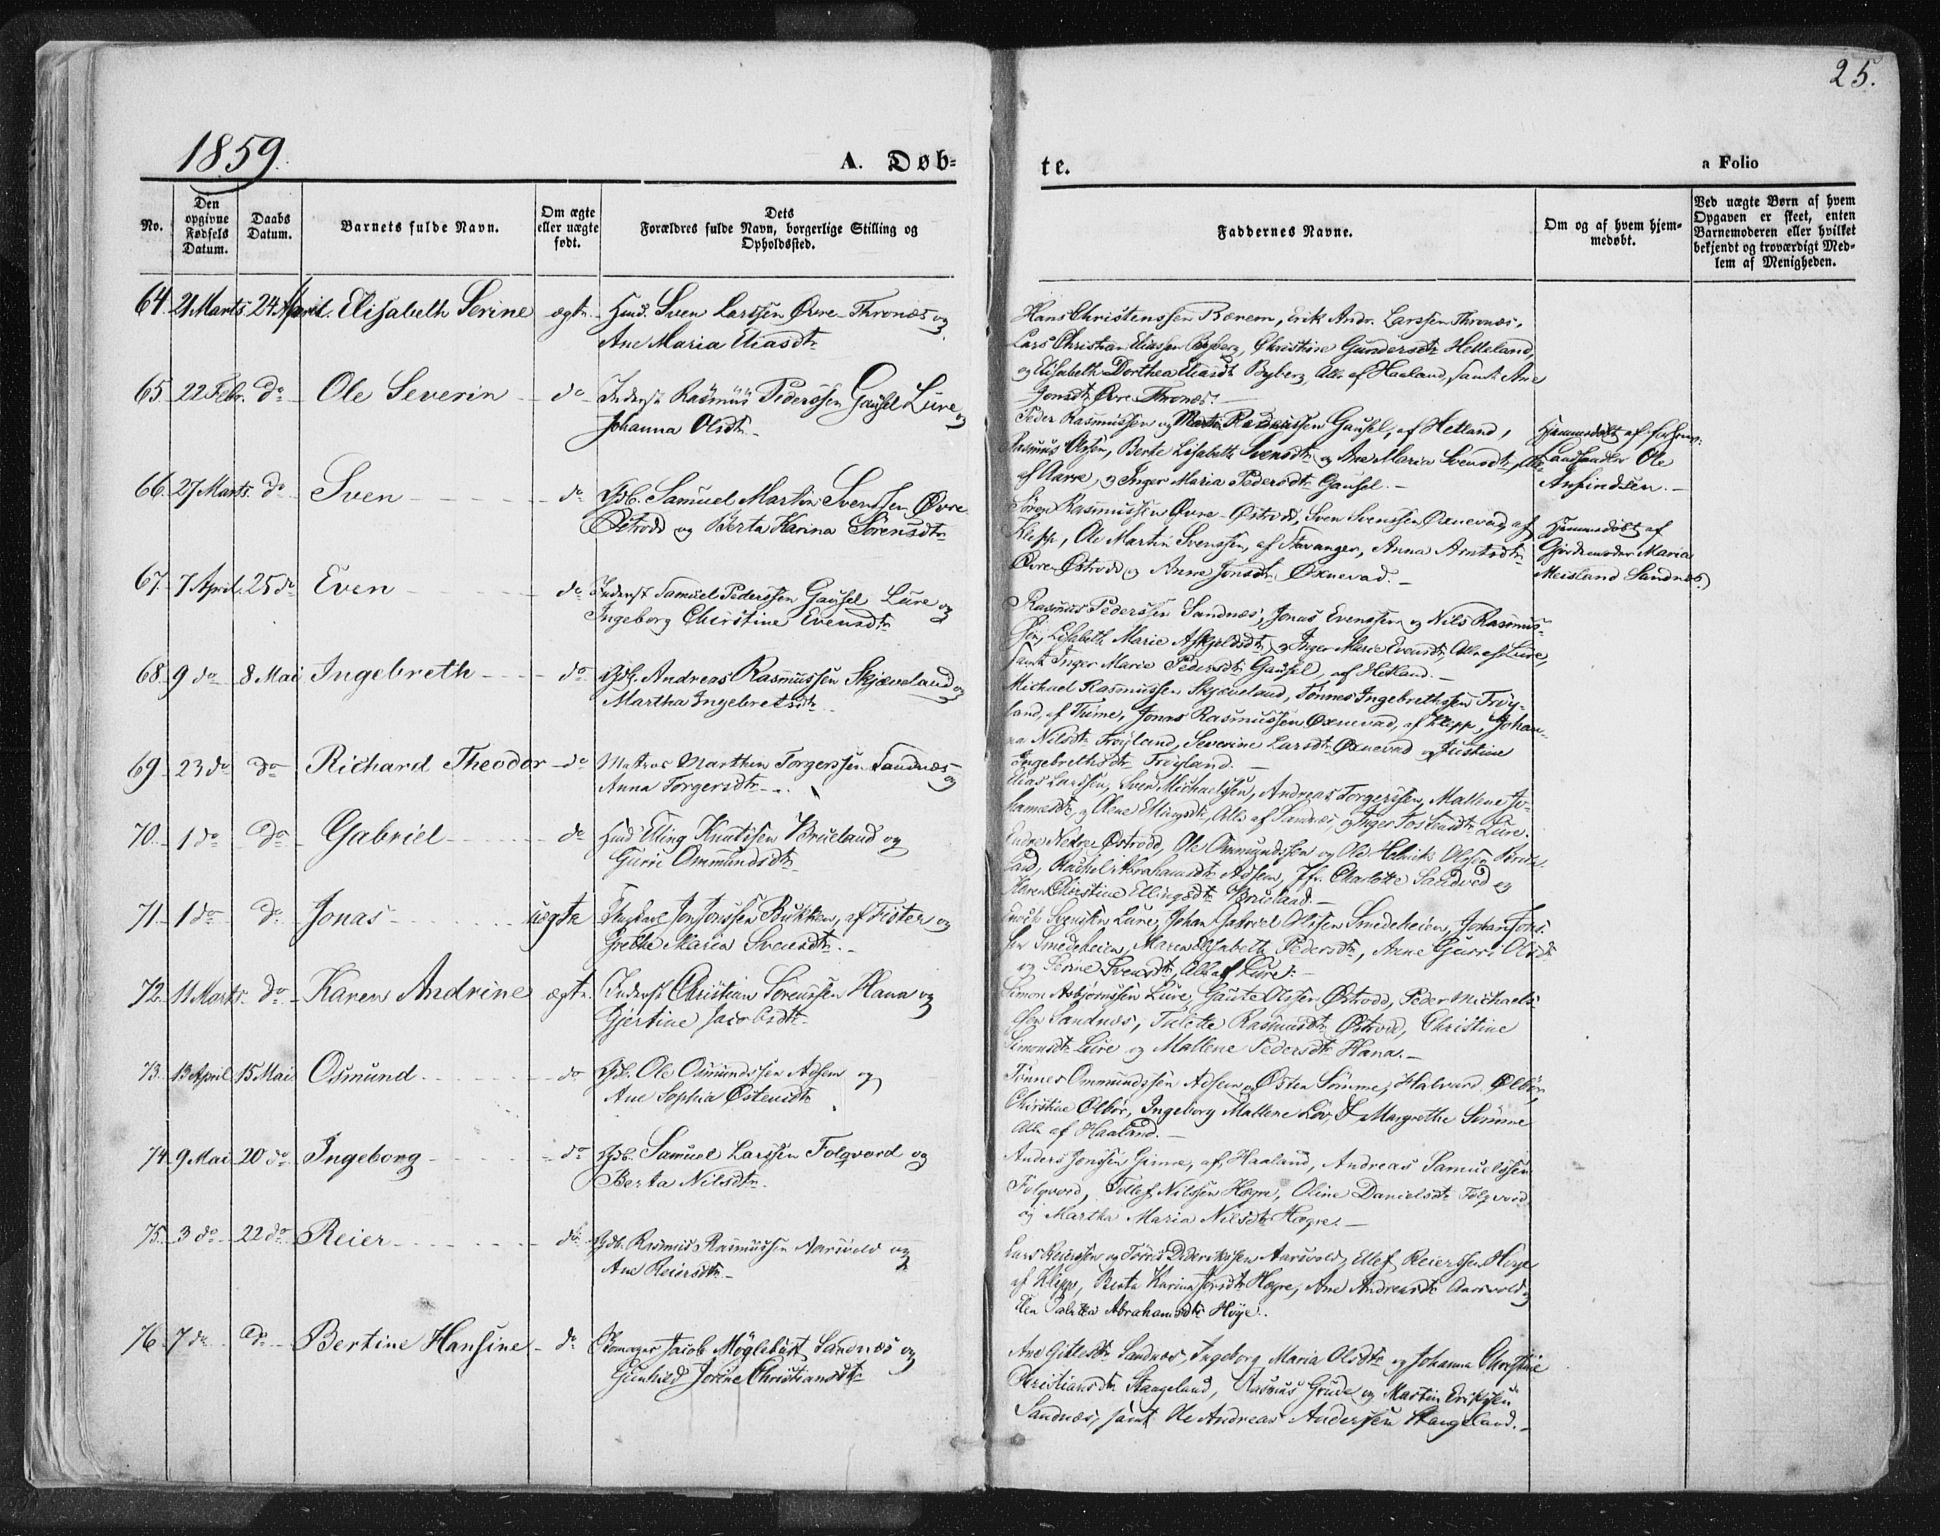 25.
1859.
A. Døb-
te.
a Folio
No.
Den opgivne Fødsels Datum.
Daabs Datum.
Barnets fulde Navn.
Om ægte eller uægte født.
Dets Forældres fulde Navn, borgerlige Stilling og Opholdssted.
Faddernes Navne.
Om og af hvem hjemmedøbt.
Ved uægte Børn af hvem Opgaven er skeet, enten Barnemoderen eller hvilket bekjendt og troværdigt Medlem af Menigheden.
64. 21 Marts 24 April. Elisabeth Serine ægte. Huusm. Sven Larssen Øvre-Thronæs og
Ane Maria Eliasdtr
Hans Christenssen Rærem, Erik Andr. Larssen Thronæs,
Lars Christian Eliassen Byberg, Christine Gundersdtr Helleland,
og Elisabeth Dorthea Eliasdtr Byberg, Alle af Haaland, samt Ane
Jonsdtr Øvre Thronæs.
65. 22 Febr. do Ole Severin do Inderst Rasmus Pederssen Gausel Lure og
Johanna Olsdtr
Peder Rasmussen og Marta Rasmussen Gausel, af Hetland,
Rasmus Olssen, Berte Lisabeth Svensdtr og Ane Maria Svensdtr, Alle
af Aarre, og Inger Maria Pedersdtr Gausel.
Hjemmedøbt af
Landhandler Ole
Anfindsen.
66. 27 Marts do Sven do Gdb. Samuel Martin Svenssen Øvre
Østrodd og Berta Karina Sørensdtr
Søren Rasmussen Øvre-Østrodd, Sven Svenssen Øxnevad, af
Klepp, Ole Martin Svenssen, af Stavanger, Anna Arntsdtr
Øvre Østrodd og Anne Jonsdtr Øxnevad.
Hjemmedøbt af
Gjordemoder Maria
Meisland Sandnæs.
67. 7 April 25 do Even do Inderst Samuel Pederssen Gausel Lure og
Ingeborg Christine Evensdtr
Rasmus Pederssen Sandnæs, Jonas Evenssen og Nils Rasmus-
sen, Lisabeth Marie Askjeldsdtr og Inger Marie Evensdtr, Alle af Lure,
samt Inger Marie Pedersdtr Gausel, af Hetland.
68. 9 do 8 Mai Ingebreth do Gdb. Andreas Rasmussen Skjæveland og
Martha Ingebretsdtr
Michael Rasmussen Skjæveland, Tønnes Ingebrethssen Frøy-
land, af Thime, Jonas Rasmussen Øxnevad, af Klepp, Johan-
na Nilsdtr Frøyland, Severine Larsdtr Øxnevad og Justine
Ingebrethsdtr Frøyland.
69. 23 do do Richard Theodor do Matros Marthin Torgerssen Sandnæs og
Anna Torgersdtr
Elias Larssen, Sven Michaelssen, Andreas Torgerssen, Mallene Jo-
hannesdtr, og Olene Ellingsdtr, Alle af Sandnæs, og Inger Tostensdtr Lure.
70. 1 do do Gabriel do Huusm Elling Knutssen Brueland og
Gurie Ommundsdtr
Nedre Østrodd, Ole Ommundssen og Ole Helmick Olssen Brue-
land, Rachel Abrahamsdtr Adsen, Jfr. Charlotte Sandved og
Karen Christine Ellingsdtr Brueland.
71. 1 do do Jonas uægte Jon Jonssen Bukken, af Fister og
Grethe Maria Svensdtr.
Svenssen Lure, Johan Gabriel Olssen Smedeheien, Johan Jons-
sen Smedeheien, Maren Elisabeth Pedersdtr, Anne Gurri Olsdtr
og Serine Svensdtr, Alle af Lure.
72. 11 Marts do Karen Andrine ægte. Inderst Christian Sørenssen Hana og
Gjertine Jacobsdtr
Simon Asbjørnssen Lure, Gaute Olssen Østrodd, Peder Michaels-
sen Sandnæs, Talette Rasmusdtr Østrod, Christine
Simonsdtr Lure og Mallene Pedersdtr Hana.
73. 13 April 15 Mai Osmund do Gdb. Ole Osmundssen Adsen og
Ane Sophia Østensdtr
Tønnes Ommundssen Adsen og Østen Sømme, Halvard Ølbør,
Christine Ølbør, Ingeborg Mallene og Margrethe Sømme
Alle af Haaland.
74. 9 Mai 20 do Ingeborg do Gdb. Samuel Larssen Folqvord og
Berta Nilsdtr.
Anders Jonssen Gimre, af Haaland, Andreas Samuelssen
Folqvord, Tollef Nilssen Høgre, Oline Danielsdtr Folqvord
og Martha Maria Nilsdtr Høgre.
75. 3 do 22 do Reier do Gdb. Rasmus Rasmussen Aarsvold og
Ane Reiersdtr
Lars Reierssen og Tørris Dideriksen Aarsvold, Ellef Reierssen Høye
af Klepp, Berta Karina Jonsdtr Høgre, Ane Andreasdtr Aarsvold og
Elen Talitta Abrahamsdtr Høye.
76. 7 do do Bertine Hansine do Skomager Jacob Møglebøst Sandnæs og
Gunhild Jorine Christiansdtr
Ane Gittesdtr Sandnæs, Ingeborg Maria Olsdtr og Johanna Christine
Christiansdtr Stangeland, Rasmus Grude og Martin Erikssen
Sandnæs, samt Ole Andreas Anderssen Stangeland.